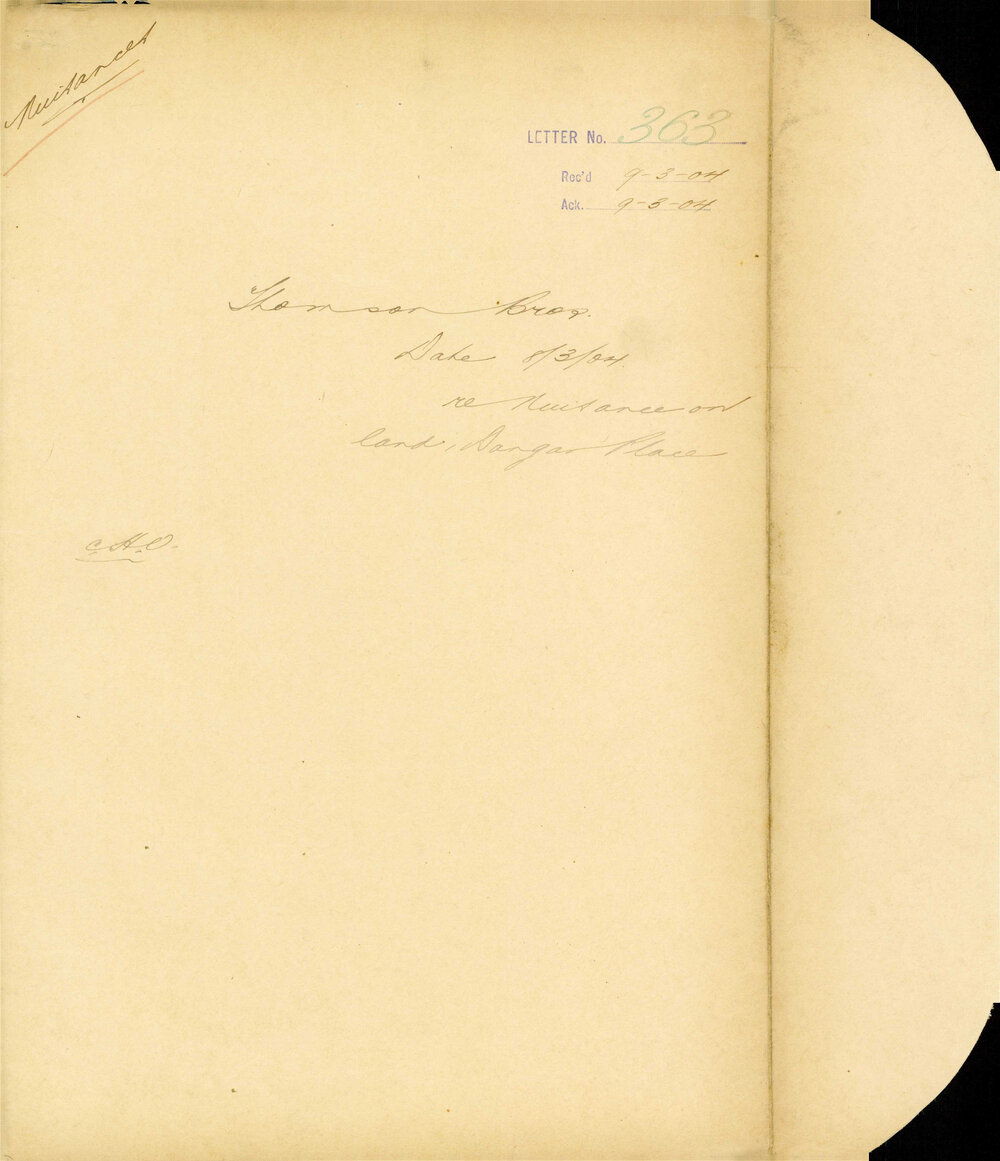 Nuisances
LETTER No. 363
Rec'd 9-3-04
Ack. 9-3-04
Thomson Bros.
Date 8/3/04
re Nuisance on
land, Dangar Place
C.H.O.